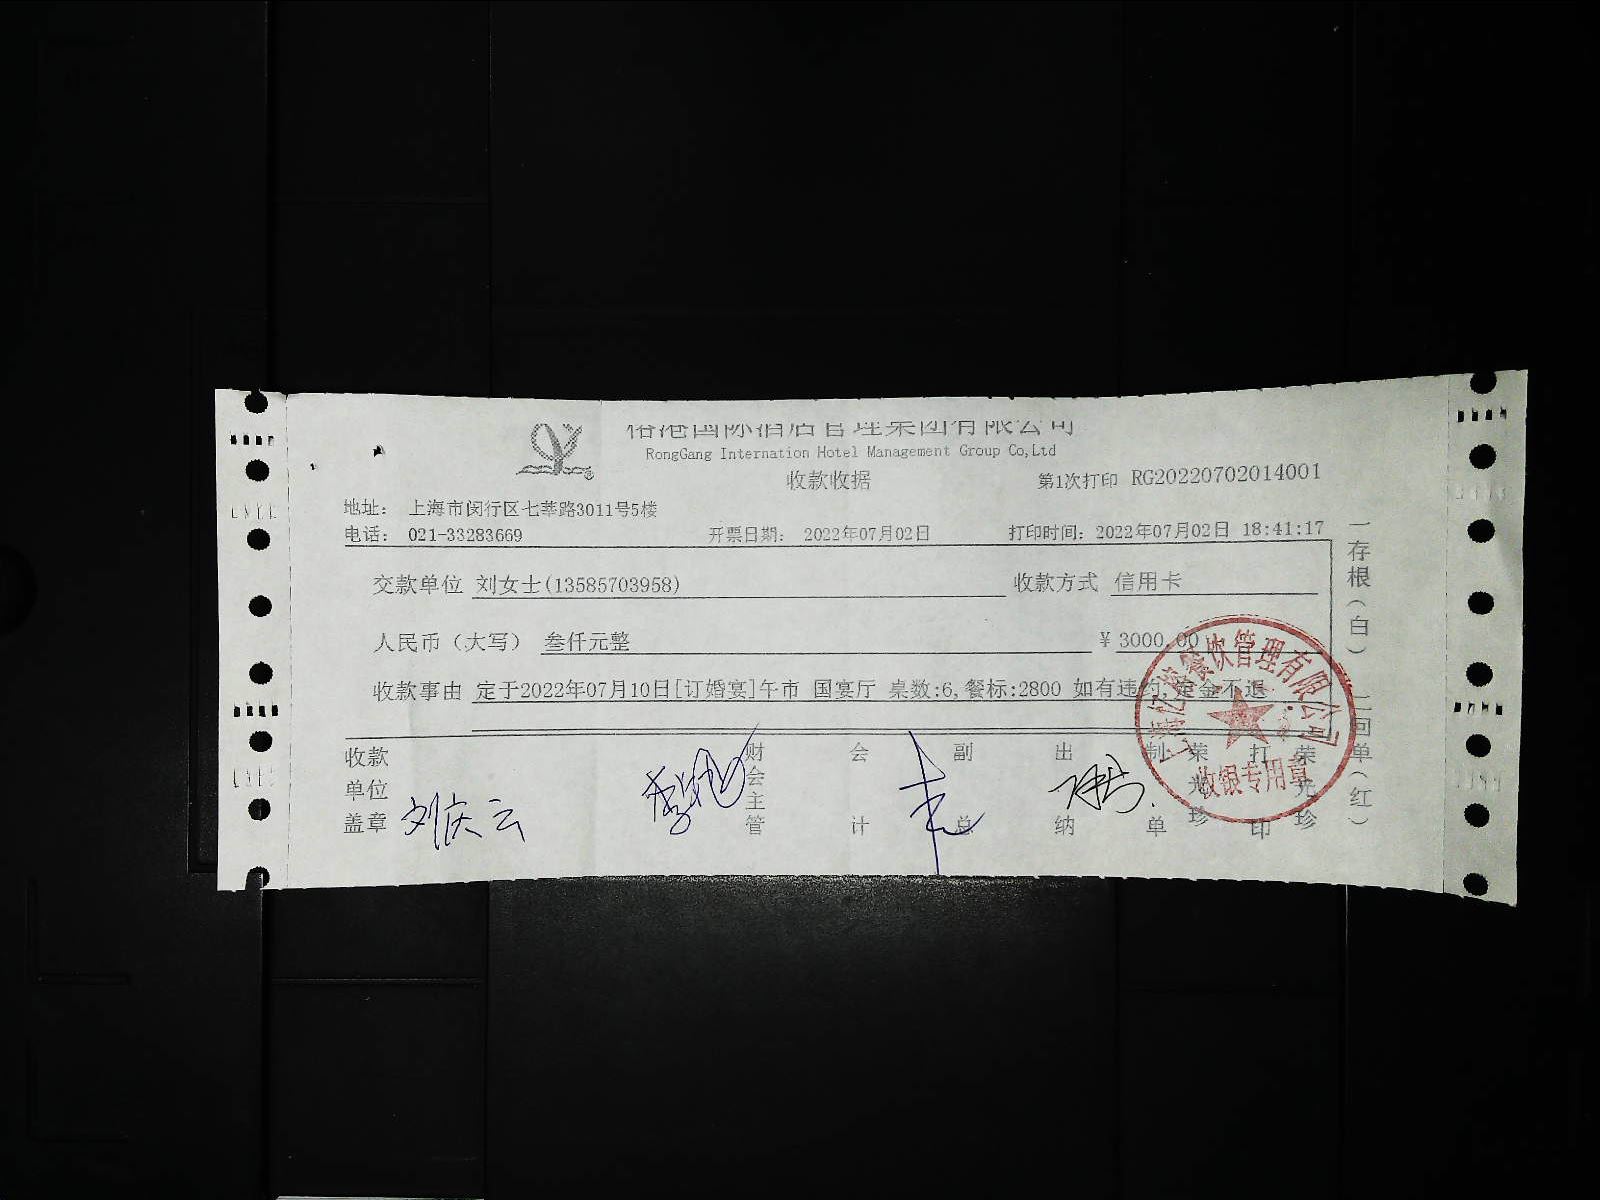 国际酒店管理集团有限公司
RongGang Internation Hotel Management Group Co,Ltd
收款收据
第1次打印 RG20220702014001
地址： 上海市闵行区七莘路3011号5楼
电话： 021-33283669 开票日期： 2022年07月02日 打印时间：2022年07月02日 18:41:17
交款单位 刘女士(13585703958) 收款方式 信用卡
人民币（大写） 叁仟元整 ¥3000.00
收款事由 定于2022年07月10日[订婚宴]午市 国宴厅 桌数:6,餐标:2800 如有违约,定金不退
收款单位盖章 刘庆云
财会主管
会计
副总
出纳
制单 荣光珍
打印 荣光珍
餐饮管理有限公司
收银专用章
一存根（白）
二回单（红）